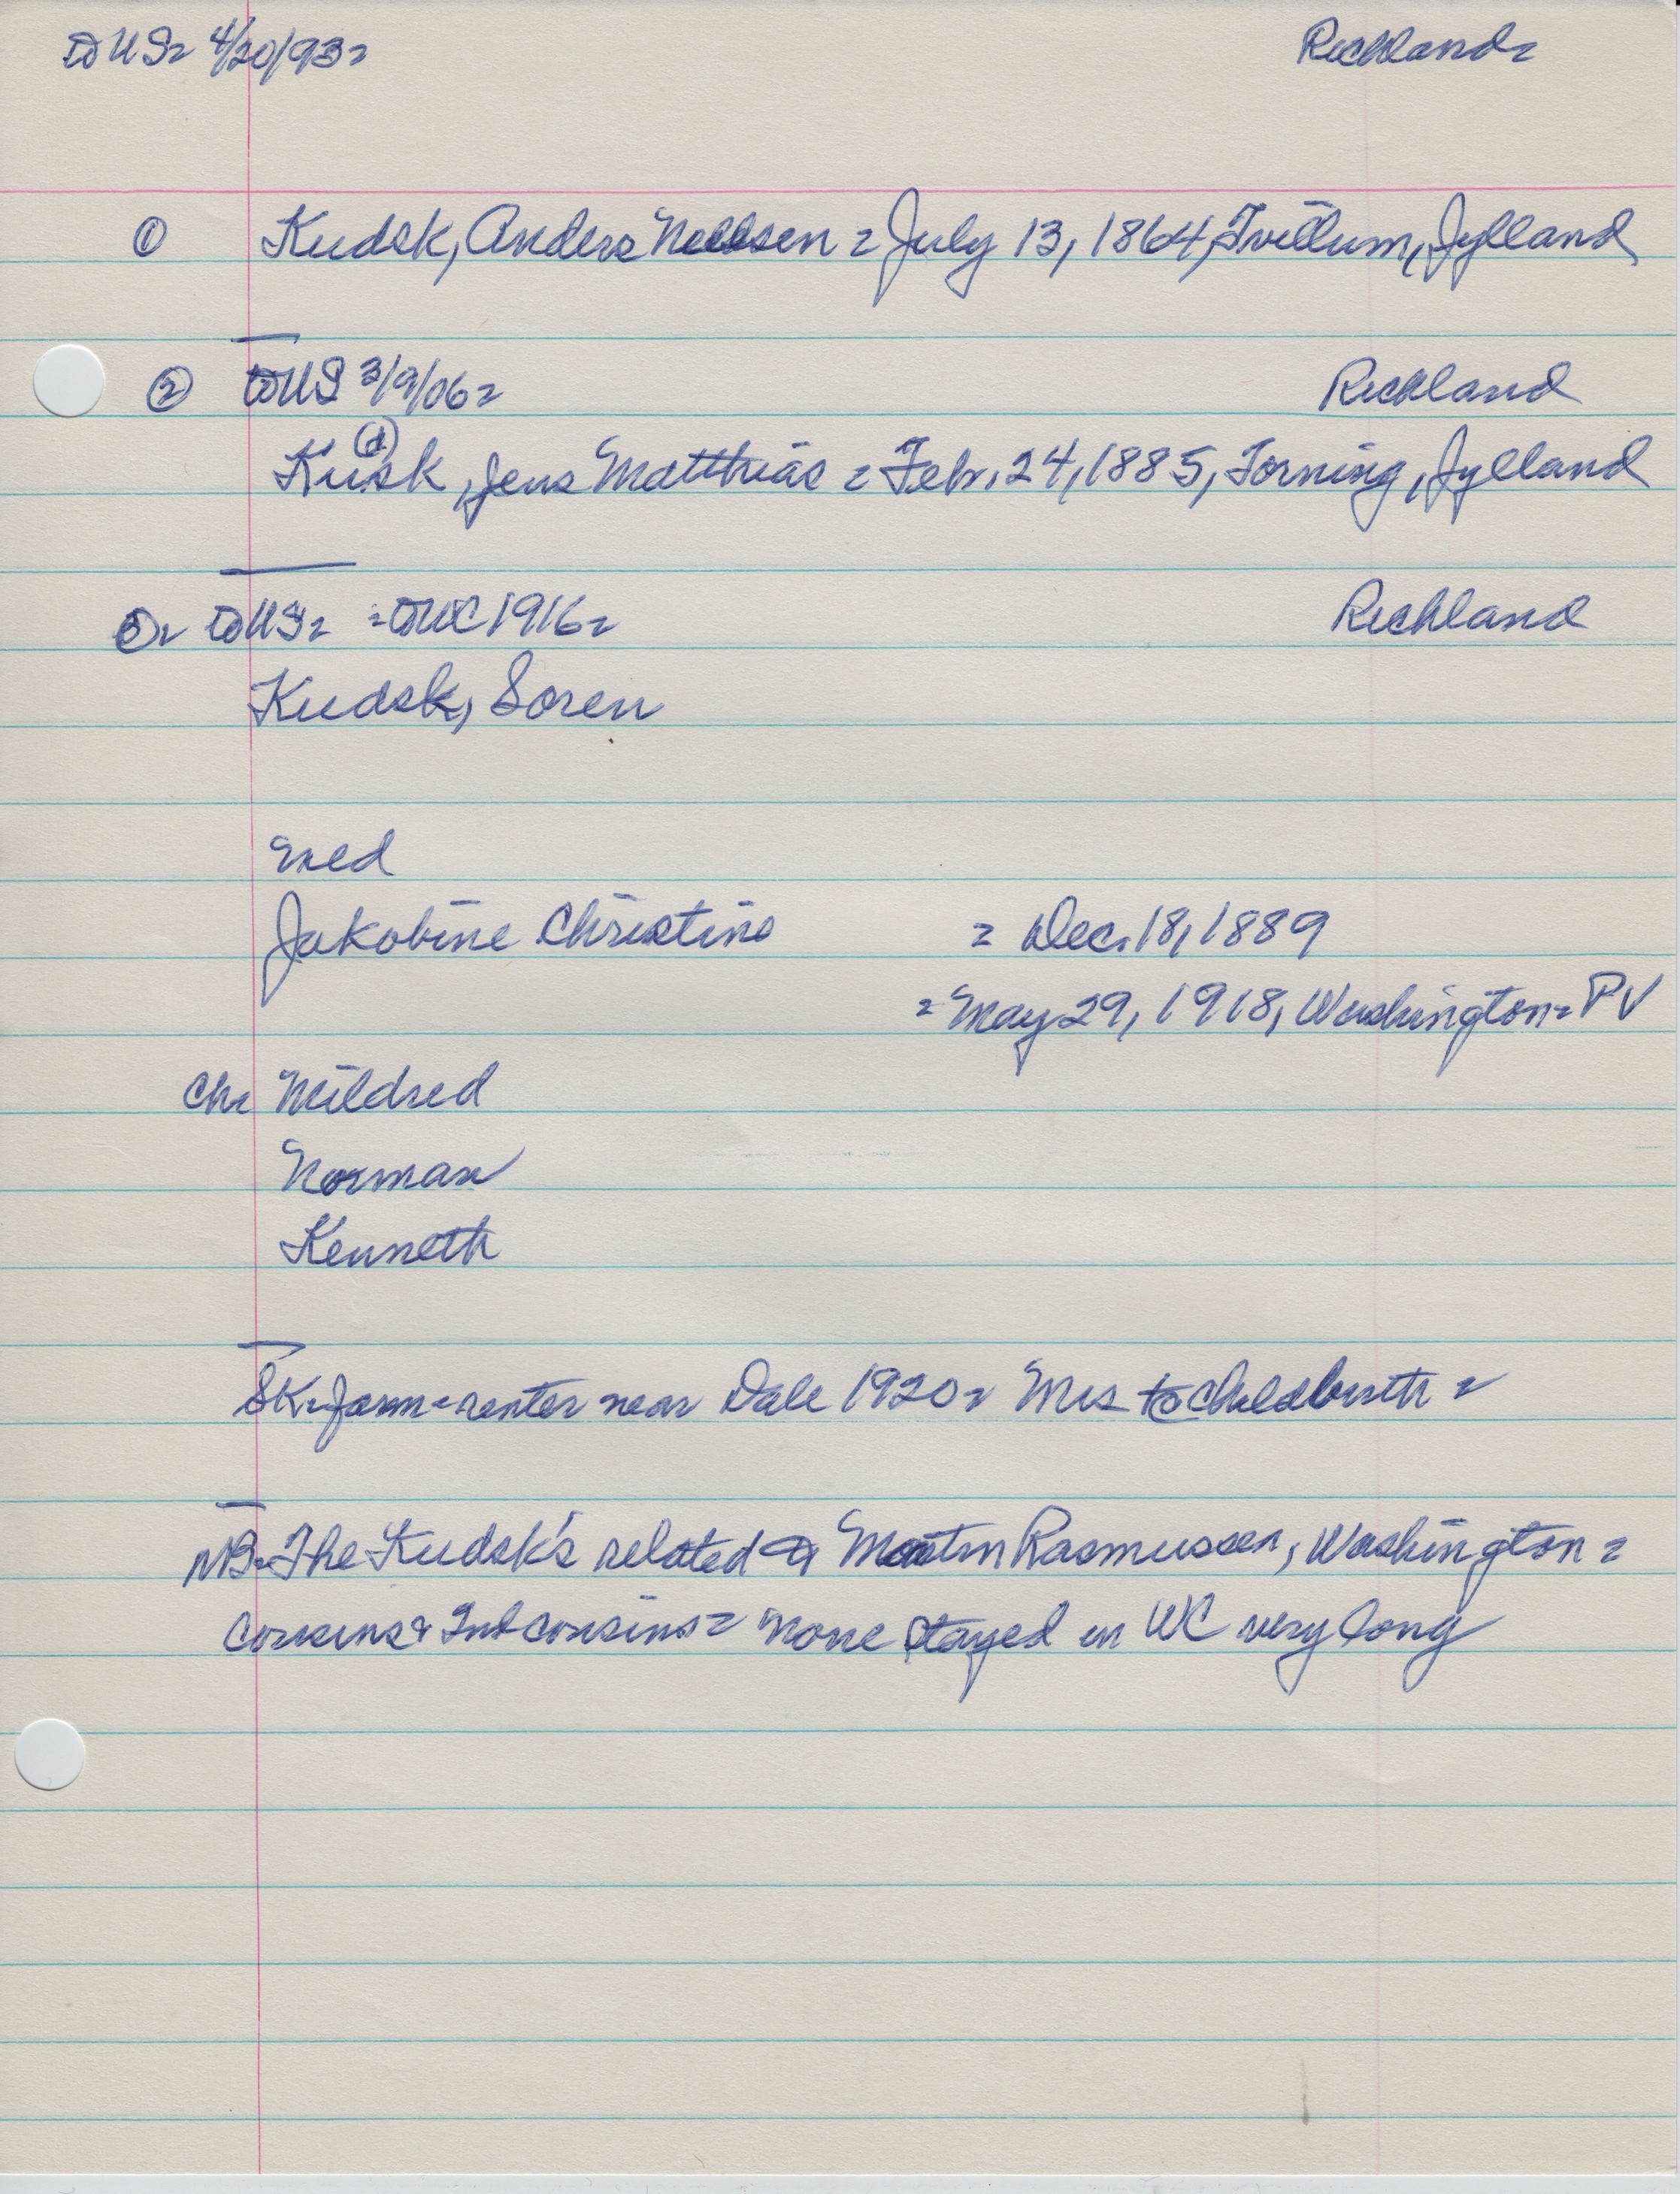 to US= 4/20/93= Richland=
① Kudsk, Anders Nielsen = July 13, 1864, Tvillum, Jylland
② to US 3/9/06= Richland
(d)
Kusk, Jens Matthias = Febr. 24, 1885, Torning, Jylland
③= to US= =to WC 1916= Richland
Kudsk, Soren
med
Jakobine Christine = Dec. 18, 1889
= May 29, 1918, Washington= PV
Ch= Mildred
Norman
Kenneth
SK=farm=renter near Dale 1920= Mrs to childbirth =
NB=The Kudsk's related to Martin Rasmussen, Washington =
cousins & 2nd cousins = None stayed in WC very long